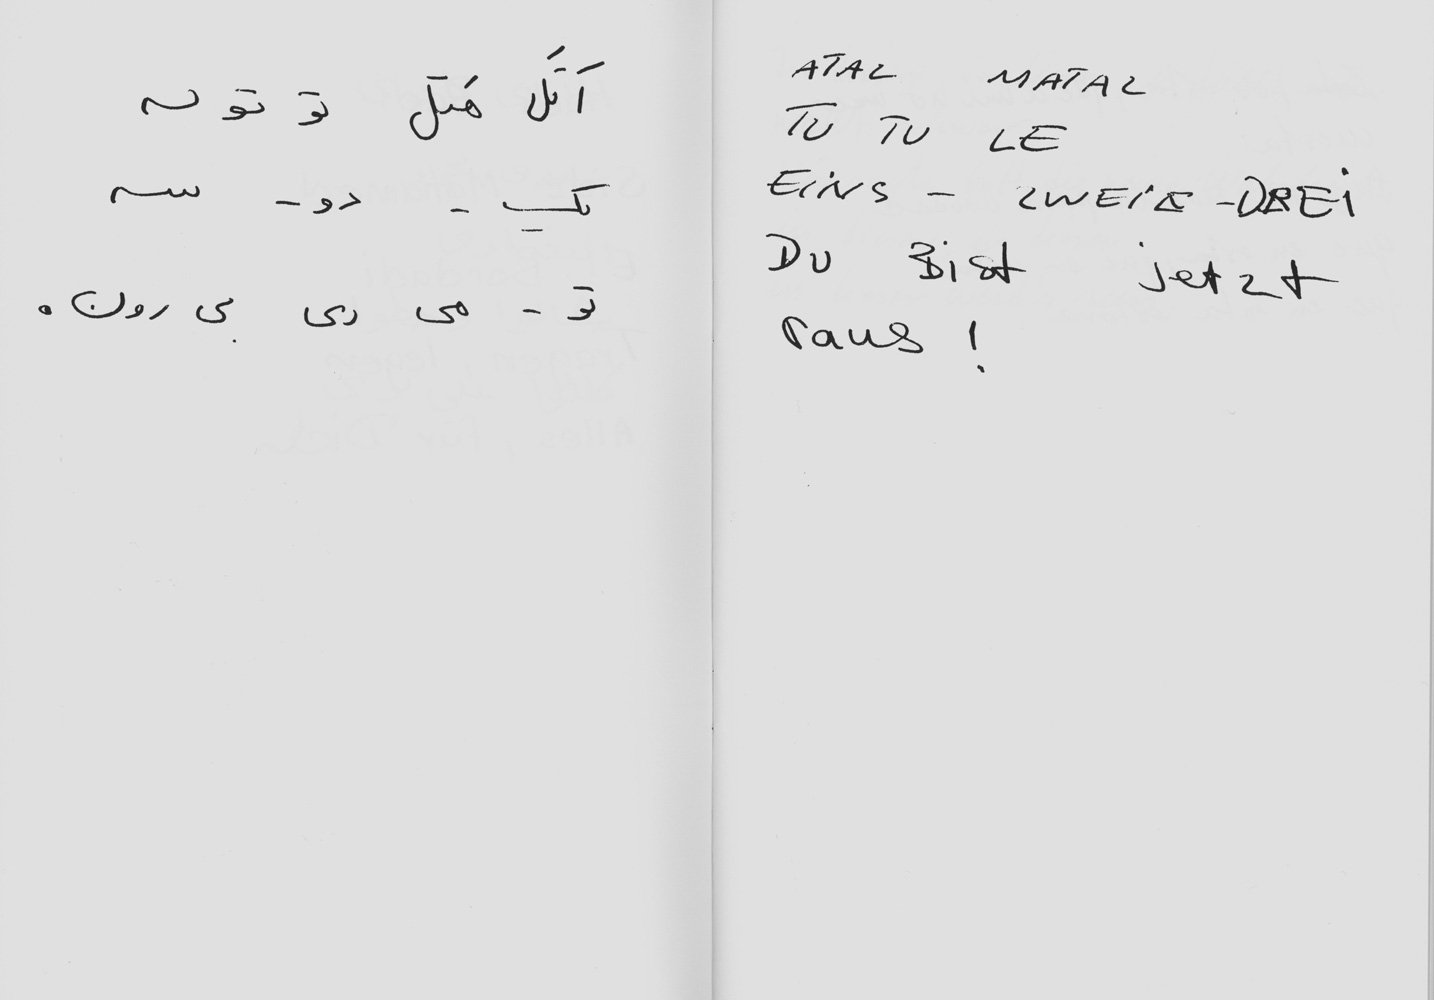 اَتَل مَتَل تو تو له
یک - دو - سه
تو - می ری بی رون.
ATAL MATAL
TU TU LE
EINS - ZWEIE - DREI
Du Bist jetzt
raus!